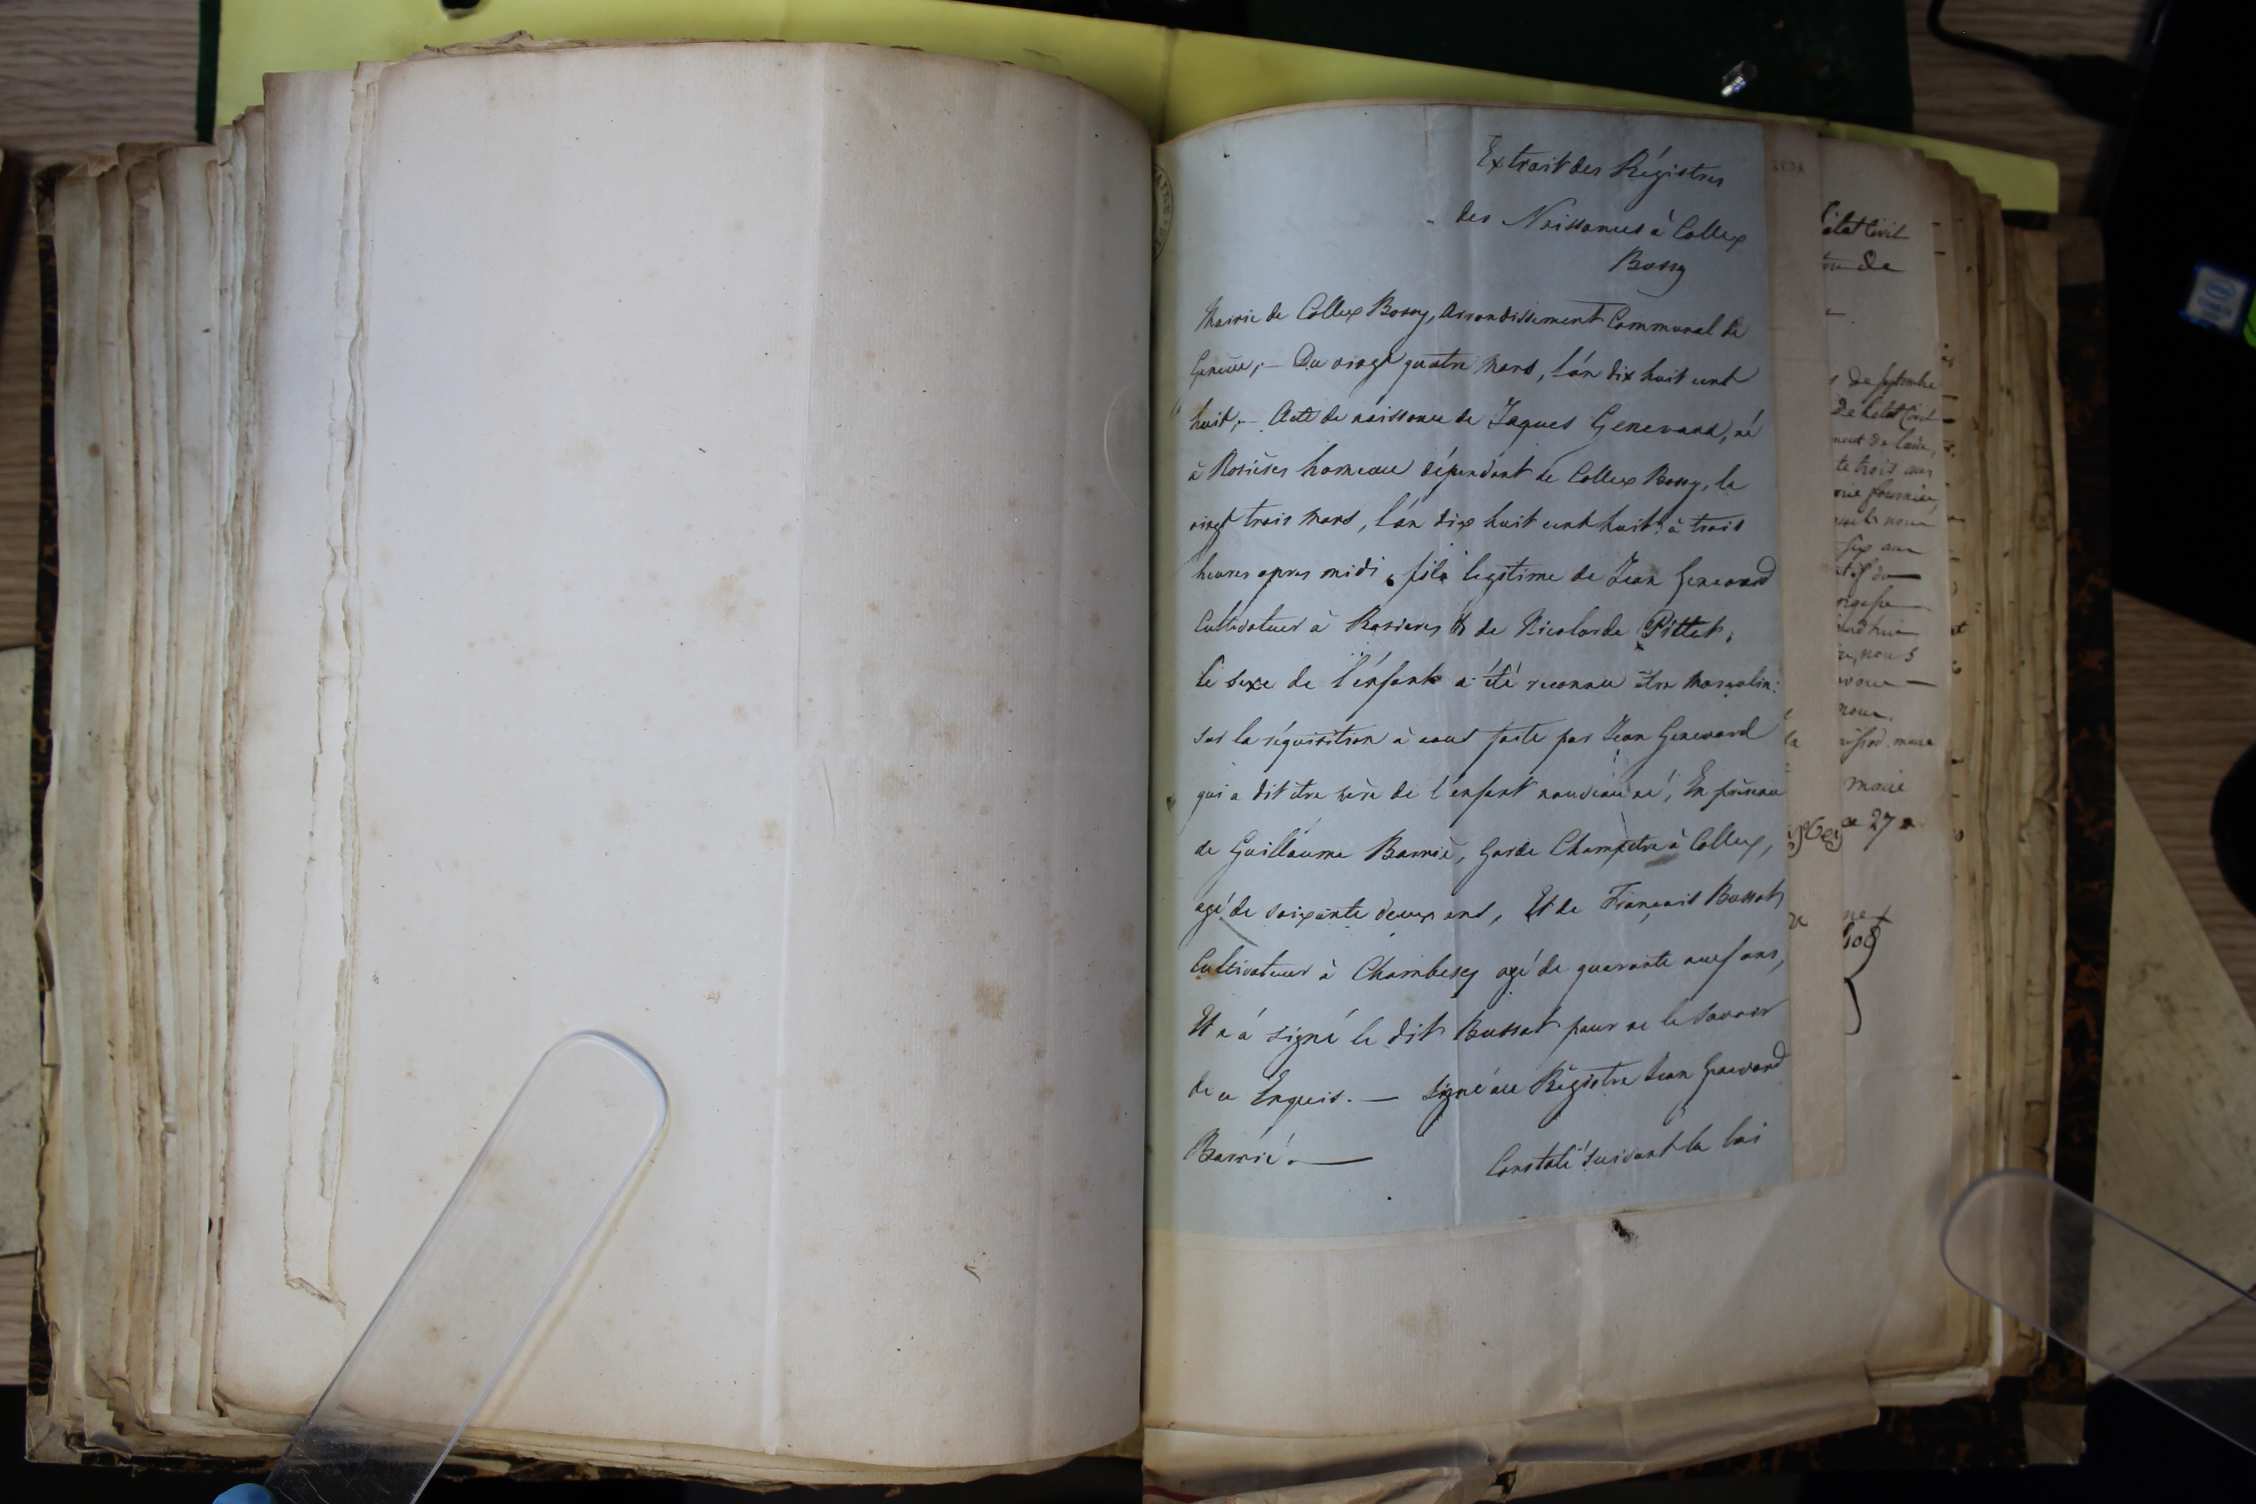 Extrait des Régistres
des Naissances à Collex
Bossy
Mairie de Collex Bossy, Arrondissement Communal de
Genève, — Du vingt quatre Mars, l'án dix huit cent
huit, — Acte de naissance de Jaques Genevard, né
à Rosières hameau dépendant de Collex Bossy, le
vingt trois Mars, l'án dix huit cent huit à trois
heures apres midi, fils legitime de Jean Genevard
Cultivateur à Rosieres & de Nicolarde Pittet,
le sexe de l'énfant a été reconnu être Masculin:
sur la réquisition à nous faite par Jean Genevard
qui a dit être père de l'énfant nouveau né, En présence
de Guillaume Barrié, Garde Champetre à Collex,
agé de soixante deux ans, Et de François Bussat
Cultivateur à Chambesy agé de quarante neuf ans,
Et n'a signé le dit Bussat pour ne le savoir
de ce Enquis. — Signé au Régistre Jean Genevard
Barrié. —
Constaté suivant la loi
état Civil
de
de septembre
de l'état Civil
te trois ans
nous
maire
27